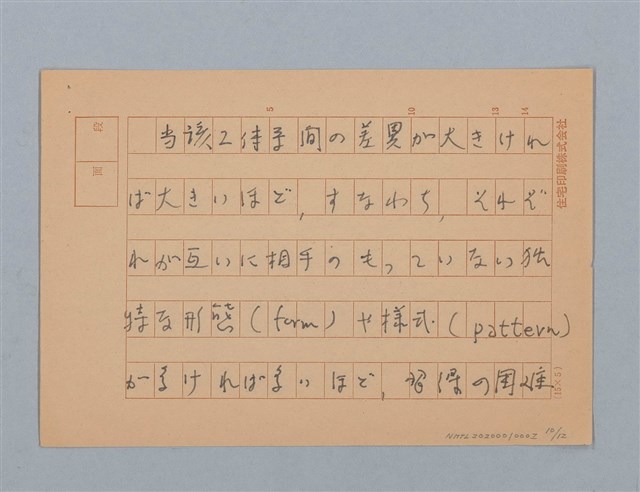 5 10 13 14
段
面
当該2体系間の差異が大きけれ
ば大きいほど,すなわち,それぞ
れが互いに相手のもっていない独
特な形態(form)や様式(pattern)
が多ければ多いほど,習得の困難
住宅印刷株式会社
(15×5)
NMTL20200010002 10/12